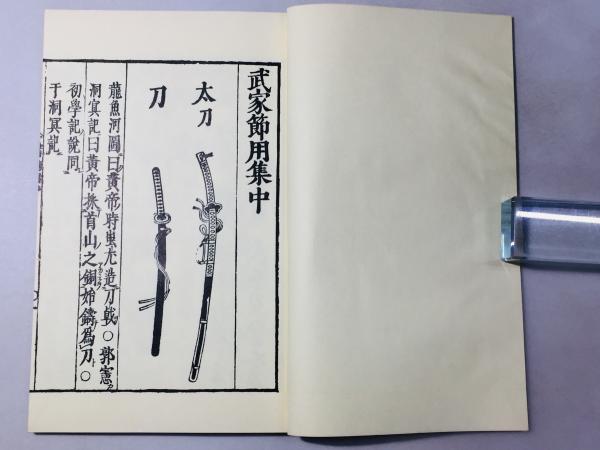 武家節用集中
太刀
刀
龍魚河圖曰黄帝時蚩尤造刀戟〇郭憲
洞冥記曰黄帝採首山之銅始鑄為刀〇
初學記說同
于洞冥記